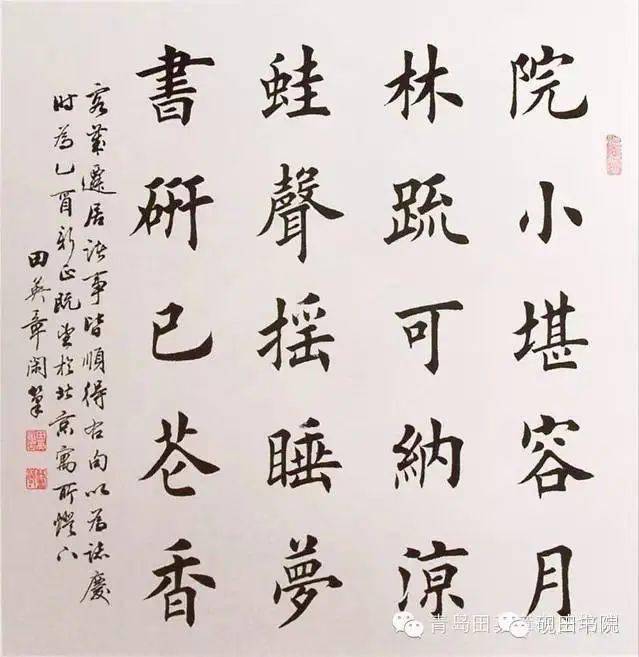 院小堪容月
林疏可納涼
蛙聲搖睡夢
書研已苍香
客歲遷居諸事皆順得右句以為誌慶
時為乙酉新正既望於北京寓所燈下
田英章閑筆
青岛田
砚田书院